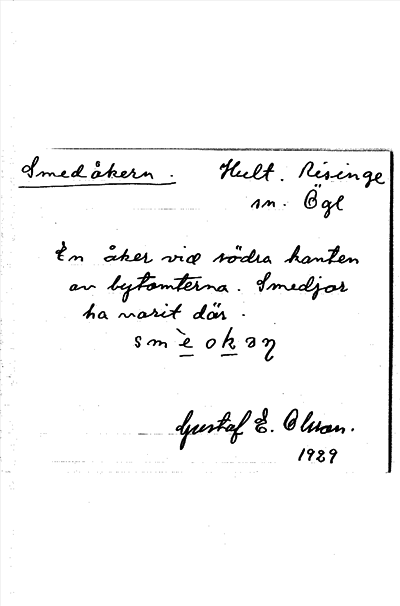 Smedåkern. Hult. Risinge
sn. Ögl
En åker vid södra kanten
av bytomterna. Smedjor
ha varit där.
smὲokəŋ
Gustaf E. Olsson.
1929